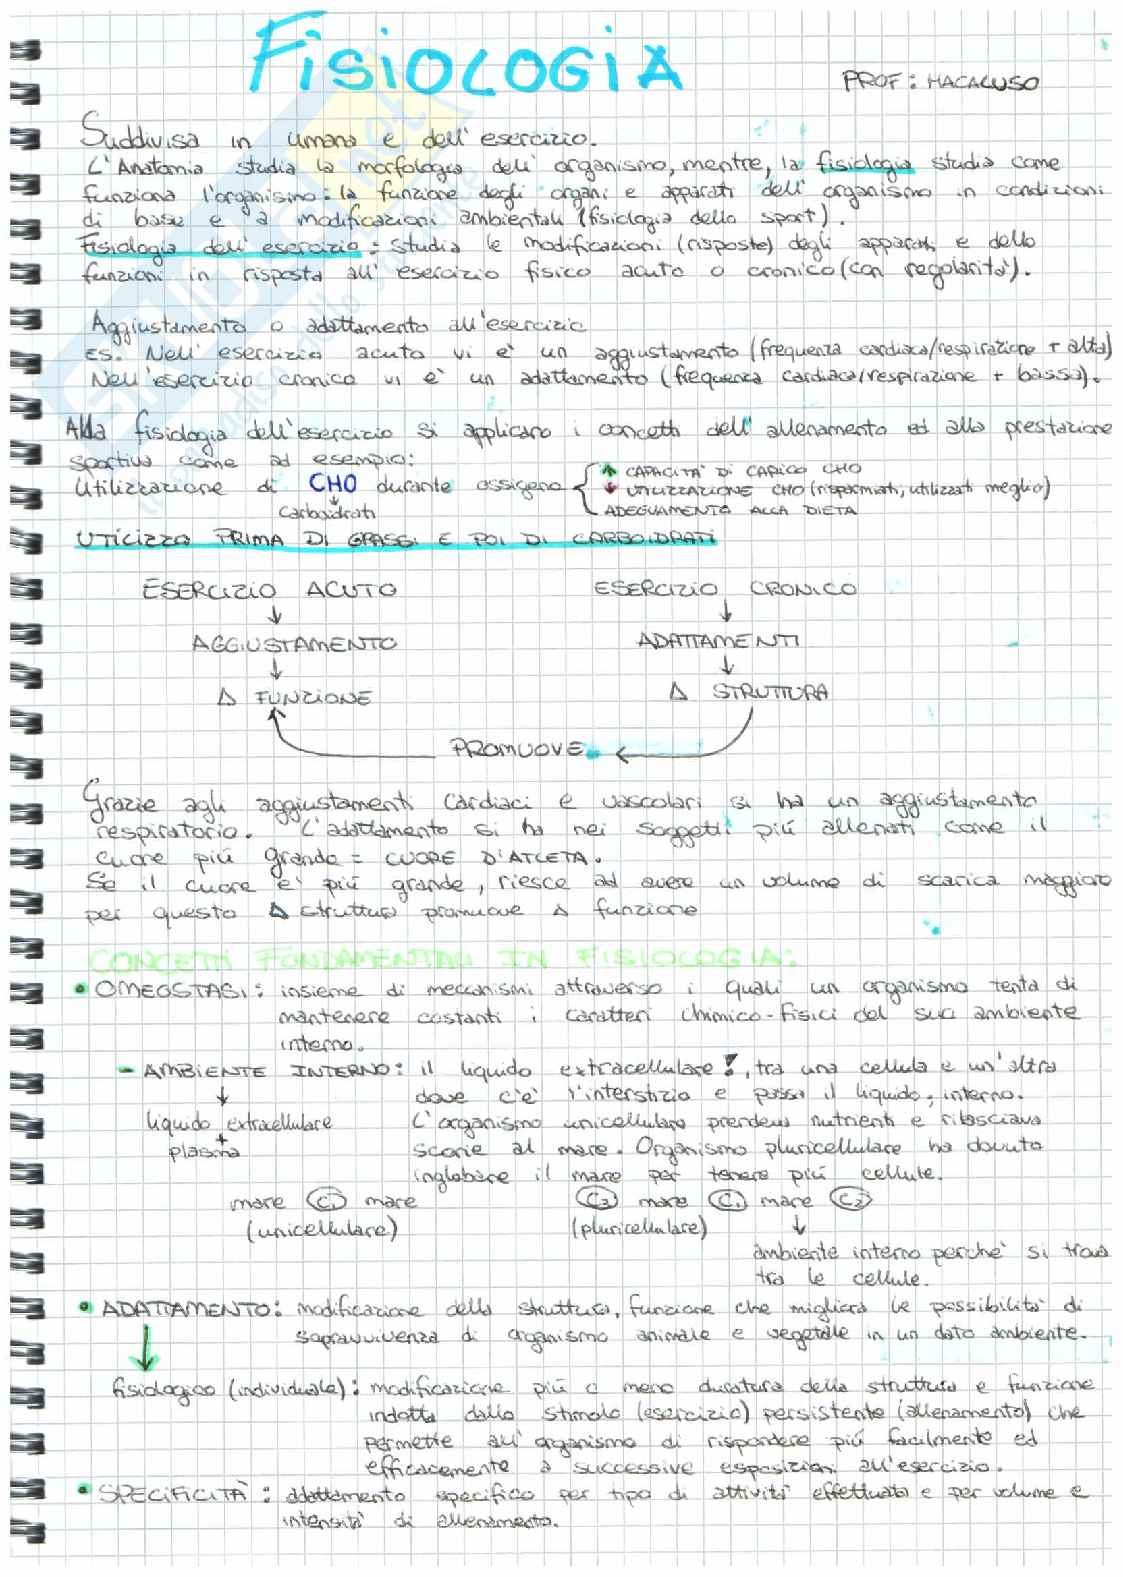 FISIOLOGIA
PROF: MACALUSO
Suddivisa in umana e dell'esercizio.
L'Anatomia studia la morfologia dell'organismo, mentre, la fisiologia studia come
funziona l'organismo: la funzione degli organi e apparati dell'organismo in condizioni
di base e a modificazioni ambientali (fisiologia dello sport).
Fisiologia dell'esercizio: studia le modificazioni (risposte) degli apparati e delle
funzioni in risposta all'esercizio fisico acuto o cronico (con regolarità).
Aggiustamento o adattamento all'esercizio
ES. Nell'esercizio acuto vi è un aggiustamento (frequenza cardiaca/respirazione + alta)
Nell'esercizio cronico vi è un adattamento (frequenza cardiaca/respirazione + bassa).
Alla fisiologia dell'esercizio si applicano i concetti dell'allenamento ed alla prestazione
sportiva come ad esempio:
Utilizzazione di CHO durante ossigeno
↑ CAPACITÀ DI CARICO CHO
↓ UTILIZZAZIONE CHO (risparmiati, utilizzati meglio)
ADEGUAMENTO ALLA DIETA
↓
carboidrati
UTILIZZO PRIMA DI GRASSI E POI DI CARBOIDRATI
ESERCIZIO ACUTO ESERCIZIO CRONICO
↓ ↓
AGGIUSTAMENTO ADATTAMENTI
↓ ↓
Δ FUNZIONE Δ STRUTTURA
PROMUOVE ←
Grazie agli aggiustamenti cardiaci e vascolari si ha un aggiustamento
respiratorio. L'adattamento si ha nei soggetti più allenati come il
cuore più grande = CUORE D'ATLETA.
Se il cuore è più grande, riesce ad avere un volume di scarica maggiore
per questo Δ struttura promuove Δ funzione
CONCETTI FONDAMENTALI IN FISIOLOGIA:
• OMEOSTASI: insieme di meccanismi attraverso i quali un organismo tenta di
mantenere costanti i caratteri chimico-fisici del suo ambiente
interno.
- AMBIENTE INTERNO: il liquido extracellulare!, tra una cellula e un'altra
dove c'è l'interstizio e passa il liquido, interno.
L'organismo unicellulare prendeva nutrienti e rilasciava
scorie al mare. Organismo pluricellulare ha dovuto
inglobare il mare per tenere più cellule.
↓
liquido extracellulare
+
plasma
mare C mare
(unicellulare)
C3 mare C1 mare C2
(pluricellulare) ↓
ambiente interno perchè si trova
tra le cellule.
• ADATTAMENTO: modificazione della struttura, funzione che migliora le possibilità di
sopravvivenza di organismo animale e vegetale in un dato ambiente.
↓
fisiologico (individuale): modificazione più o meno duratura della struttura e funzione
indotta dallo stimolo (esercizio) persistente (allenamento) che
permette all'organismo di rispondere più facilmente ed
efficacemente a successive esposizioni all'esercizio.
• SPECIFICITÀ: adattamento specifico per tipo di attività effettuata e per volume e
intensità di allenamento.